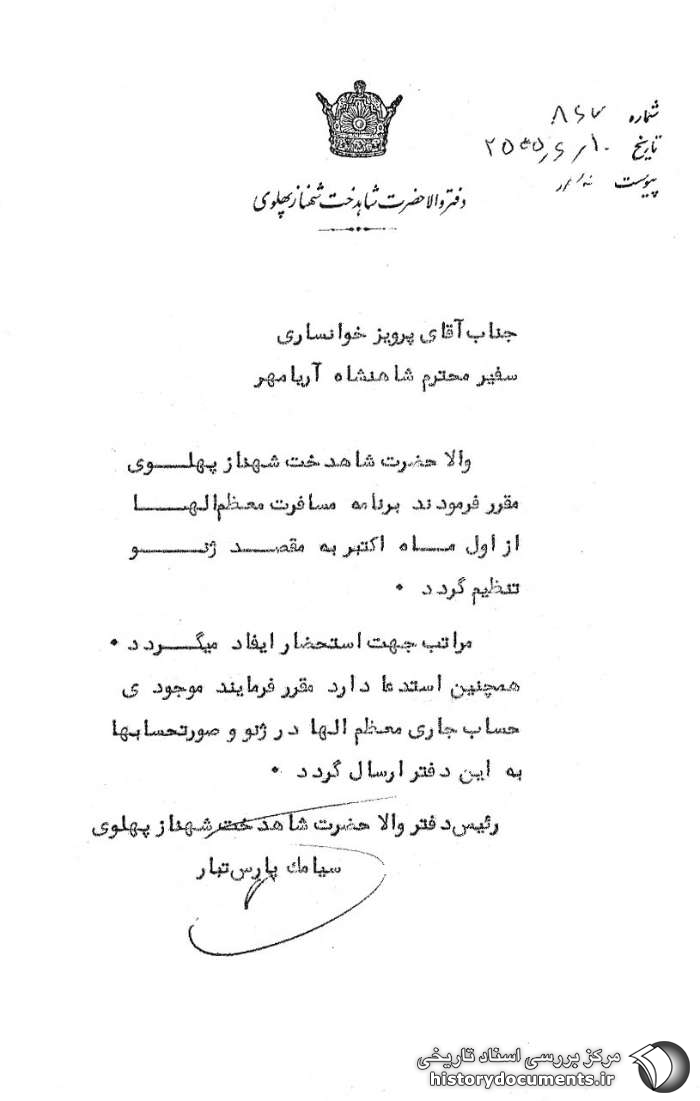 شماره ۸۶۷
تاریخ ۲۵۳۵٫۶٫۱۰
پیوست ندارد
دفتر والاحضرت شاهدخت شهناز پهلوی
جناب آقای پرویز خوانساری
سفیر محترم شاهنشاه آریامهر
والا حضرت شاهدخت شهناز پهلوی
مقرر فرمودند برنامه مسافرت معظم‌الها
از اول ماه اکتبر به مقصد ژنو
تنظیم گردد .
مراتب جهت استحضار ایفاد میگردد .
همچنین استدعا دارد مقرر فرمایند موجودی
حساب جاری معظم الها در ژنو و صورتحسابها
به این دفتر ارسال گردد .
رئیس دفتر والا حضرت شاهدخت شهناز پهلوی
سیامك پارس‌تبار
مرکز بررسی اسناد تاریخی
historydocuments.ir